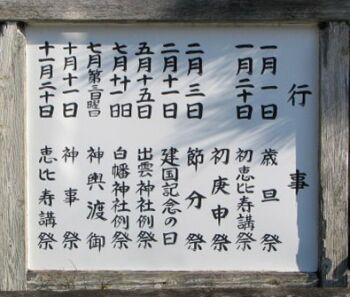 行事
一月一日 歳旦祭
一月二十日 初恵比寿講祭
初庚申祭
二月三日 節分祭
二月十一日 建国記念の日
五月十五日 出雲神社例祭
七月十八日 白幡神社例祭
七月第三日曜日 神輿渡御
十月十一日 神事祭
十一月二十日 恵比寿講祭